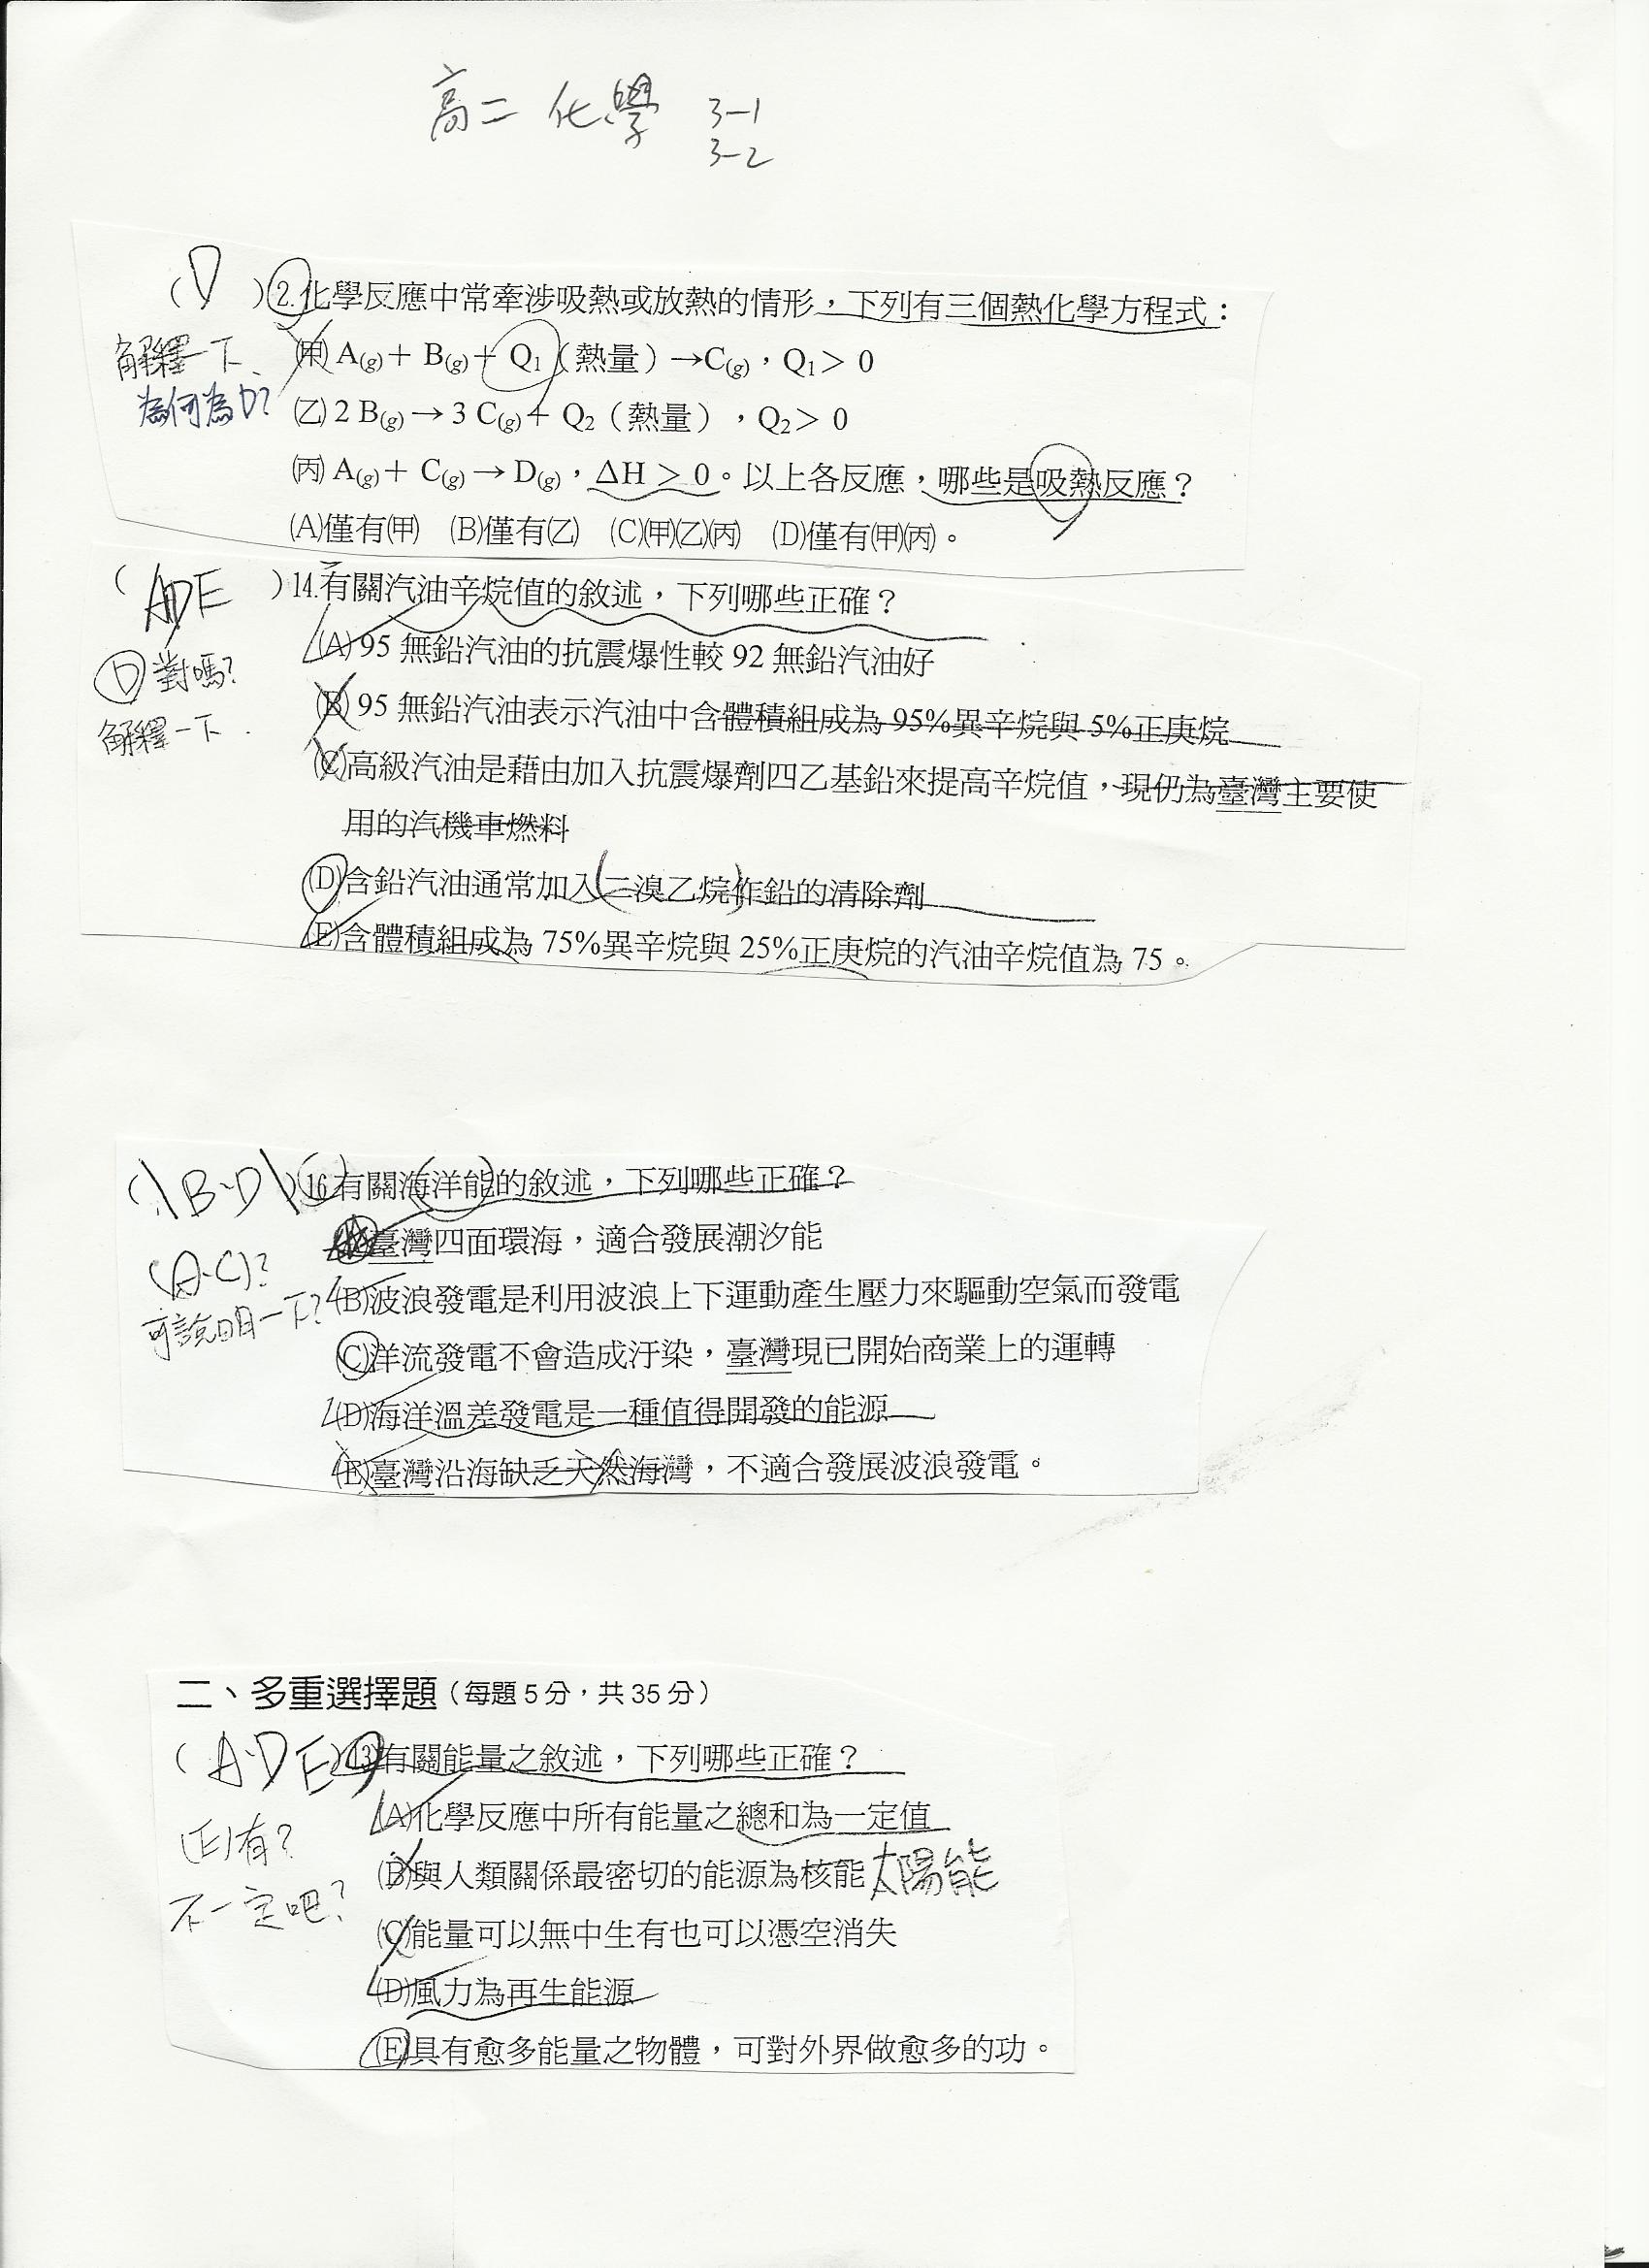 高二 化學 3-1
3-2
(D)2.化學反應中常牽涉吸熱或放熱的情形，下列有三個熱化學方程式：
解釋一下、
為何為D?
(甲) A(g)＋ B(g)＋ Q1（熱量）→C(g)，Q1＞ 0
(乙) 2 B(g)→ 3 C(g)＋ Q2（熱量），Q2＞ 0
(丙) A(g)＋ C(g)→ D(g)，ΔH ＞ 0。以上各反應，哪些是吸熱反應？
(A)僅有(甲) (B)僅有(乙) (C)(甲)(乙)(丙) (D)僅有(甲)(丙)。
(ADE)14.有關汽油辛烷值的敘述，下列哪些正確？
D對嗎?
解釋一下.
(A) 95 無鉛汽油的抗震爆性較 92 無鉛汽油好
(B) 95 無鉛汽油表示汽油中含體積組成為 95%異辛烷與 5%正庚烷
(C)高級汽油是藉由加入抗震爆劑四乙基鉛來提高辛烷值，現仍為臺灣主要使
用的汽機車燃料
(D)含鉛汽油通常加入二溴乙烷作鉛的清除劑
(E)含體積組成為 75%異辛烷與 25%正庚烷的汽油辛烷值為 75。
(B.D)16.有關海洋能的敘述，下列哪些正確？
(A.C)?
可說明一下?
(A)臺灣四面環海，適合發展潮汐能
(B)波浪發電是利用波浪上下運動產生壓力來驅動空氣而發電
(C)洋流發電不會造成汙染，臺灣現已開始商業上的運轉
(D)海洋溫差發電是一種值得開發的能源
(E)臺灣沿海缺乏天然海灣，不適合發展波浪發電。
二、多重選擇題（每題 5 分，共 35 分）
(A.D E)13.有關能量之敘述，下列哪些正確？
(E)有?
不一定吧?
(A)化學反應中所有能量之總和為一定值
(B)與人類關係最密切的能源為核能 太陽能
(C)能量可以無中生有也可以憑空消失
(D)風力為再生能源
(E)具有愈多能量之物體，可對外界做愈多的功。